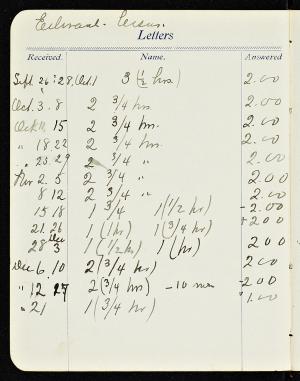 Letters
Received. Name. Answered
Sept 26 : 28, Oct. 1 3 (1/2 hrs.) 2.00
Oct. 3. 8 2 3/4 hrs. 2.00
Oct 11, 15 2 3/4 hrs. 2.00
" 18. 22 2 3/4 hrs. 2.00
" 23. 29 2 3/4 " 2.00
Nov 2. 5 2 3/4 " 2.00
8 12 2 3/4 " 2.00
15 18 1 3/4 1 (1/2 hr) 2.00
21. 26 1 (1 hr) 1 (3/4 hr) 2.00
28 Dec 3 1 (1/2 hr) 1 (hr) 2.00
Dec 6. 10 2 (3/4 hr) 2.00
" 12 2 (3/4 hrs) - 10 2.00
" 21 1 (3/4 hr) 1.00